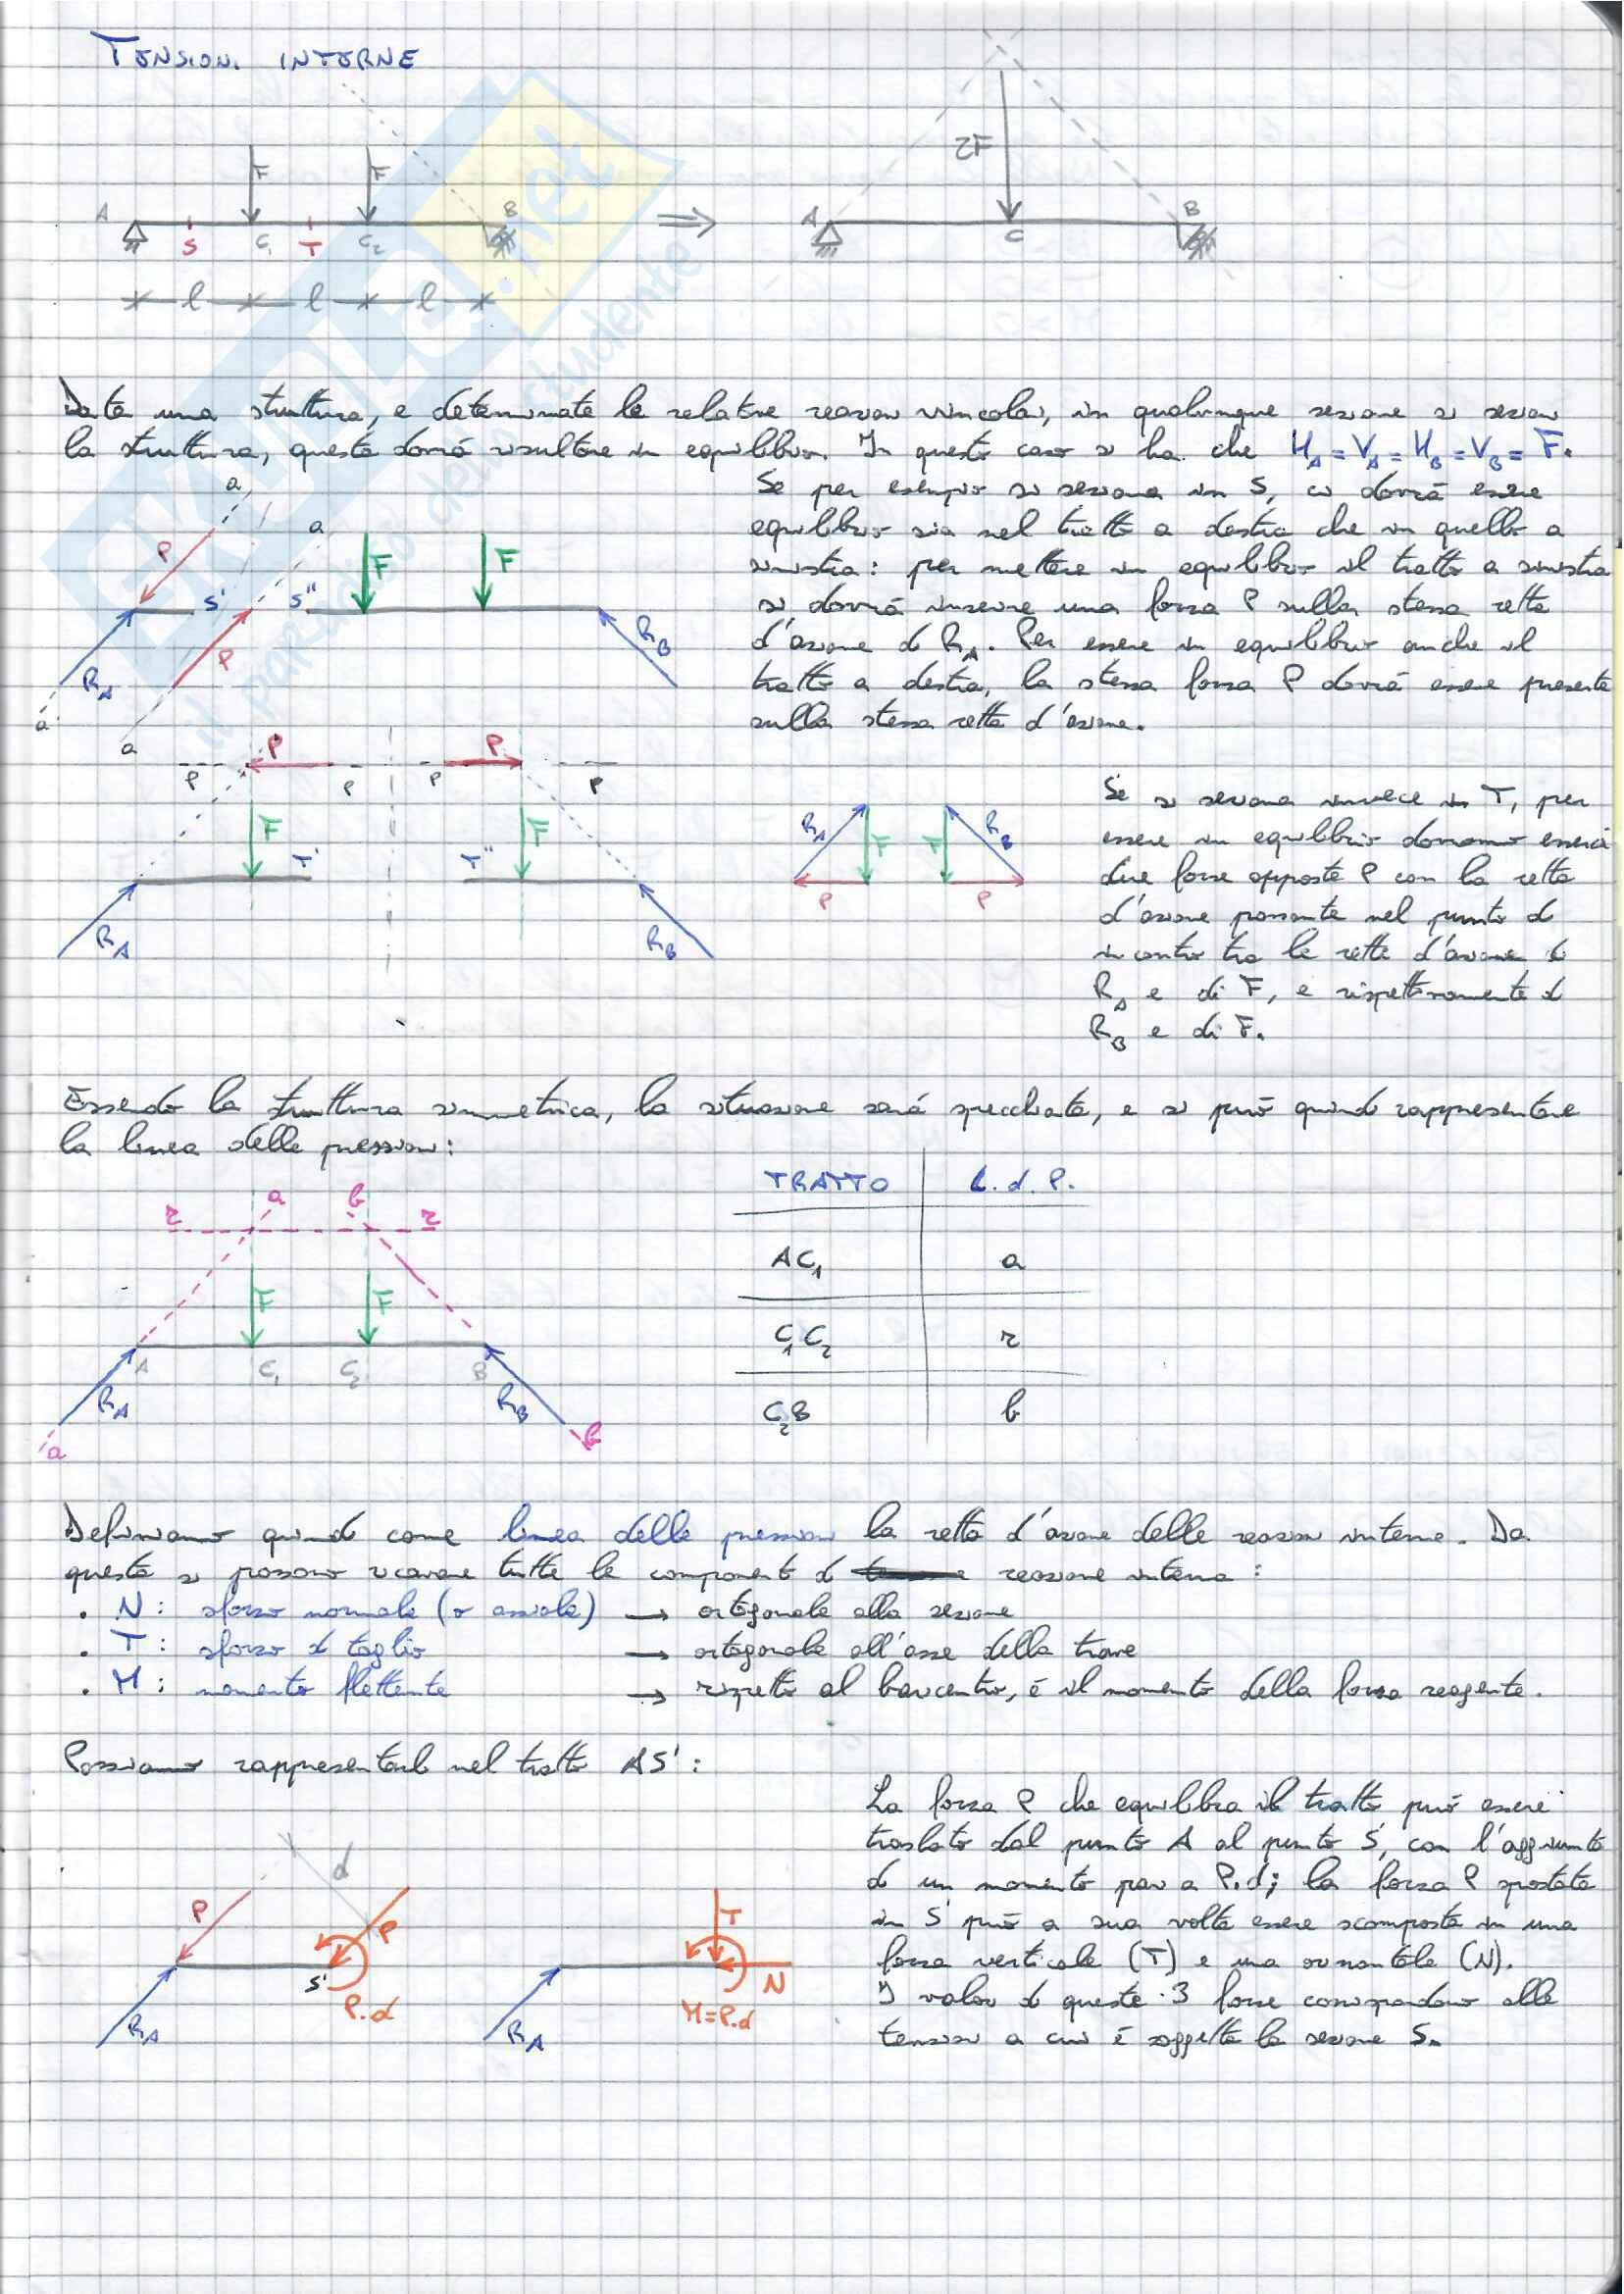 TENSIONI INTERNE
F F 2F
A S C₁ T C₂ B ⇒ A C B
l l l
Data una struttura, e determinate le relative reazioni vincolari, in qualunque sezione si sezioni
la struttura, questa dovrá risultare in equilibrio. In questo caso si ha che H_A = V_A = H_B = V_B = F.
Se per esempio si seziona in S, ci dovrá essere
equilibrio sia nel tratto a destra che in quello a
sinistra: per mettere in equilibrio il tratto a sinistra
si dovrá inserire una forza P sulla stessa retta
d'azione di R_A. Per essere in equilibrio anche il
tratto a destra, la stessa forza P dovrá essere presente
sulla stessa retta d'azione.
a a
P S' S'' F F
R_A P R_B
a a
P P
p p p p
F T' T'' F
R_A R_B
R_A F F R_B
P P
Se si seziona invece in T, per
essere in equilibrio dovranno esserci
due forze opposte P con la retta
d'azione passante nel punto di
incontro tra le rette d'azione di
R_A e di F, e rispettivamente di
R_B e di F.
Essendo la struttura simmetrica, la situazione sará specchiata, e si puó quindi rappresentare
la linea delle pressioni:
r a b r
F F
A C₁ C₂ B
R_A R_B
a b
TRATTO L.d.P.
AC₁ a
C₁C₂ r
C₂B b
Definiamo quindi come linea delle pressioni la retta d'azione delle reazioni interne. Da
questa si possono ricavare tutte le componenti di reazione interna:
. N: sforzo normale (o assiale) → ortogonale alla sezione
. T: sforzo di taglio → ortogonale all'asse della trave
. M: momento flettente → rispetto al baricentro, é il momento della forza reagente.
Possiamo rappresentarli nel tratto AS':
La forza P che equilibra il tratto puó essere
traslata dal punto A al punto S', con l'aggiunta
di un momento pari a P.d; la forza P spostata
in S' puó a sua volta essere scomposta in una
forza verticale (T) e una orizzontale (N).
I valori di queste 3 forze corrispondono alle
tensioni a cui é soggetta la sezione S.
P d P
S' P.d
R_A
T N
M=P.d
R_A